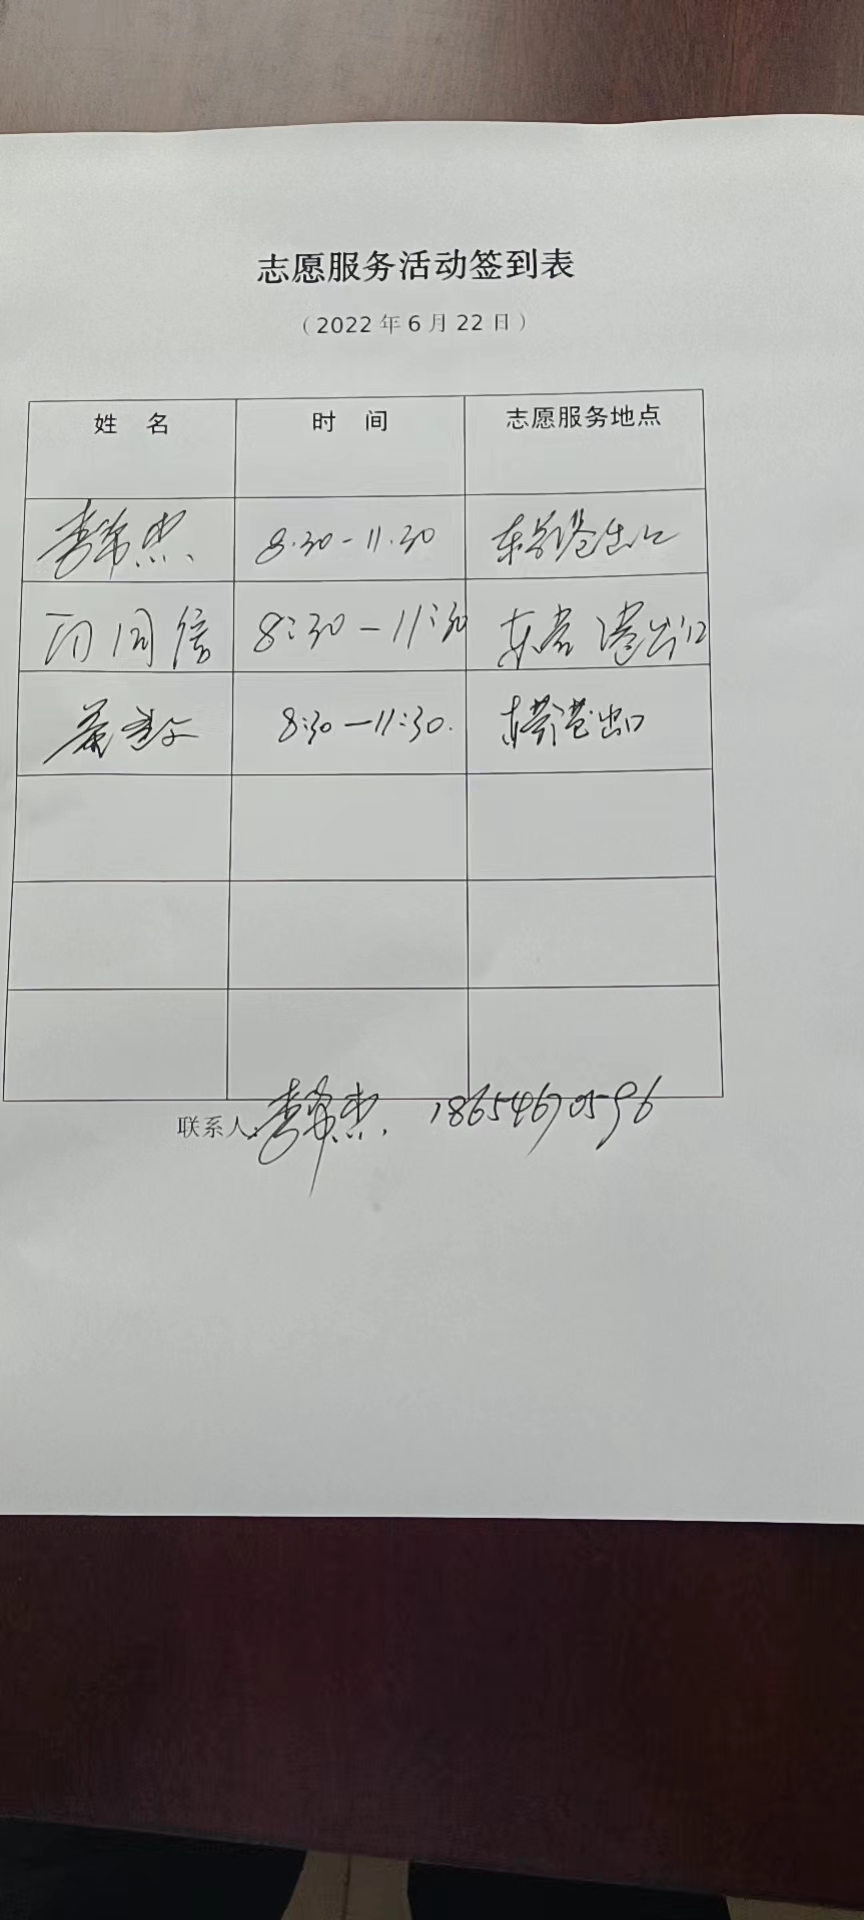 志愿服务活动签到表
（2022年6月22日）
姓 名 时 间 志愿服务地点
李常杰 8:30-11:30 东营港出口
8:30-11:30 东营港出口
8:30-11:30. 东营港出口
联系人: 李常杰. 18654670596